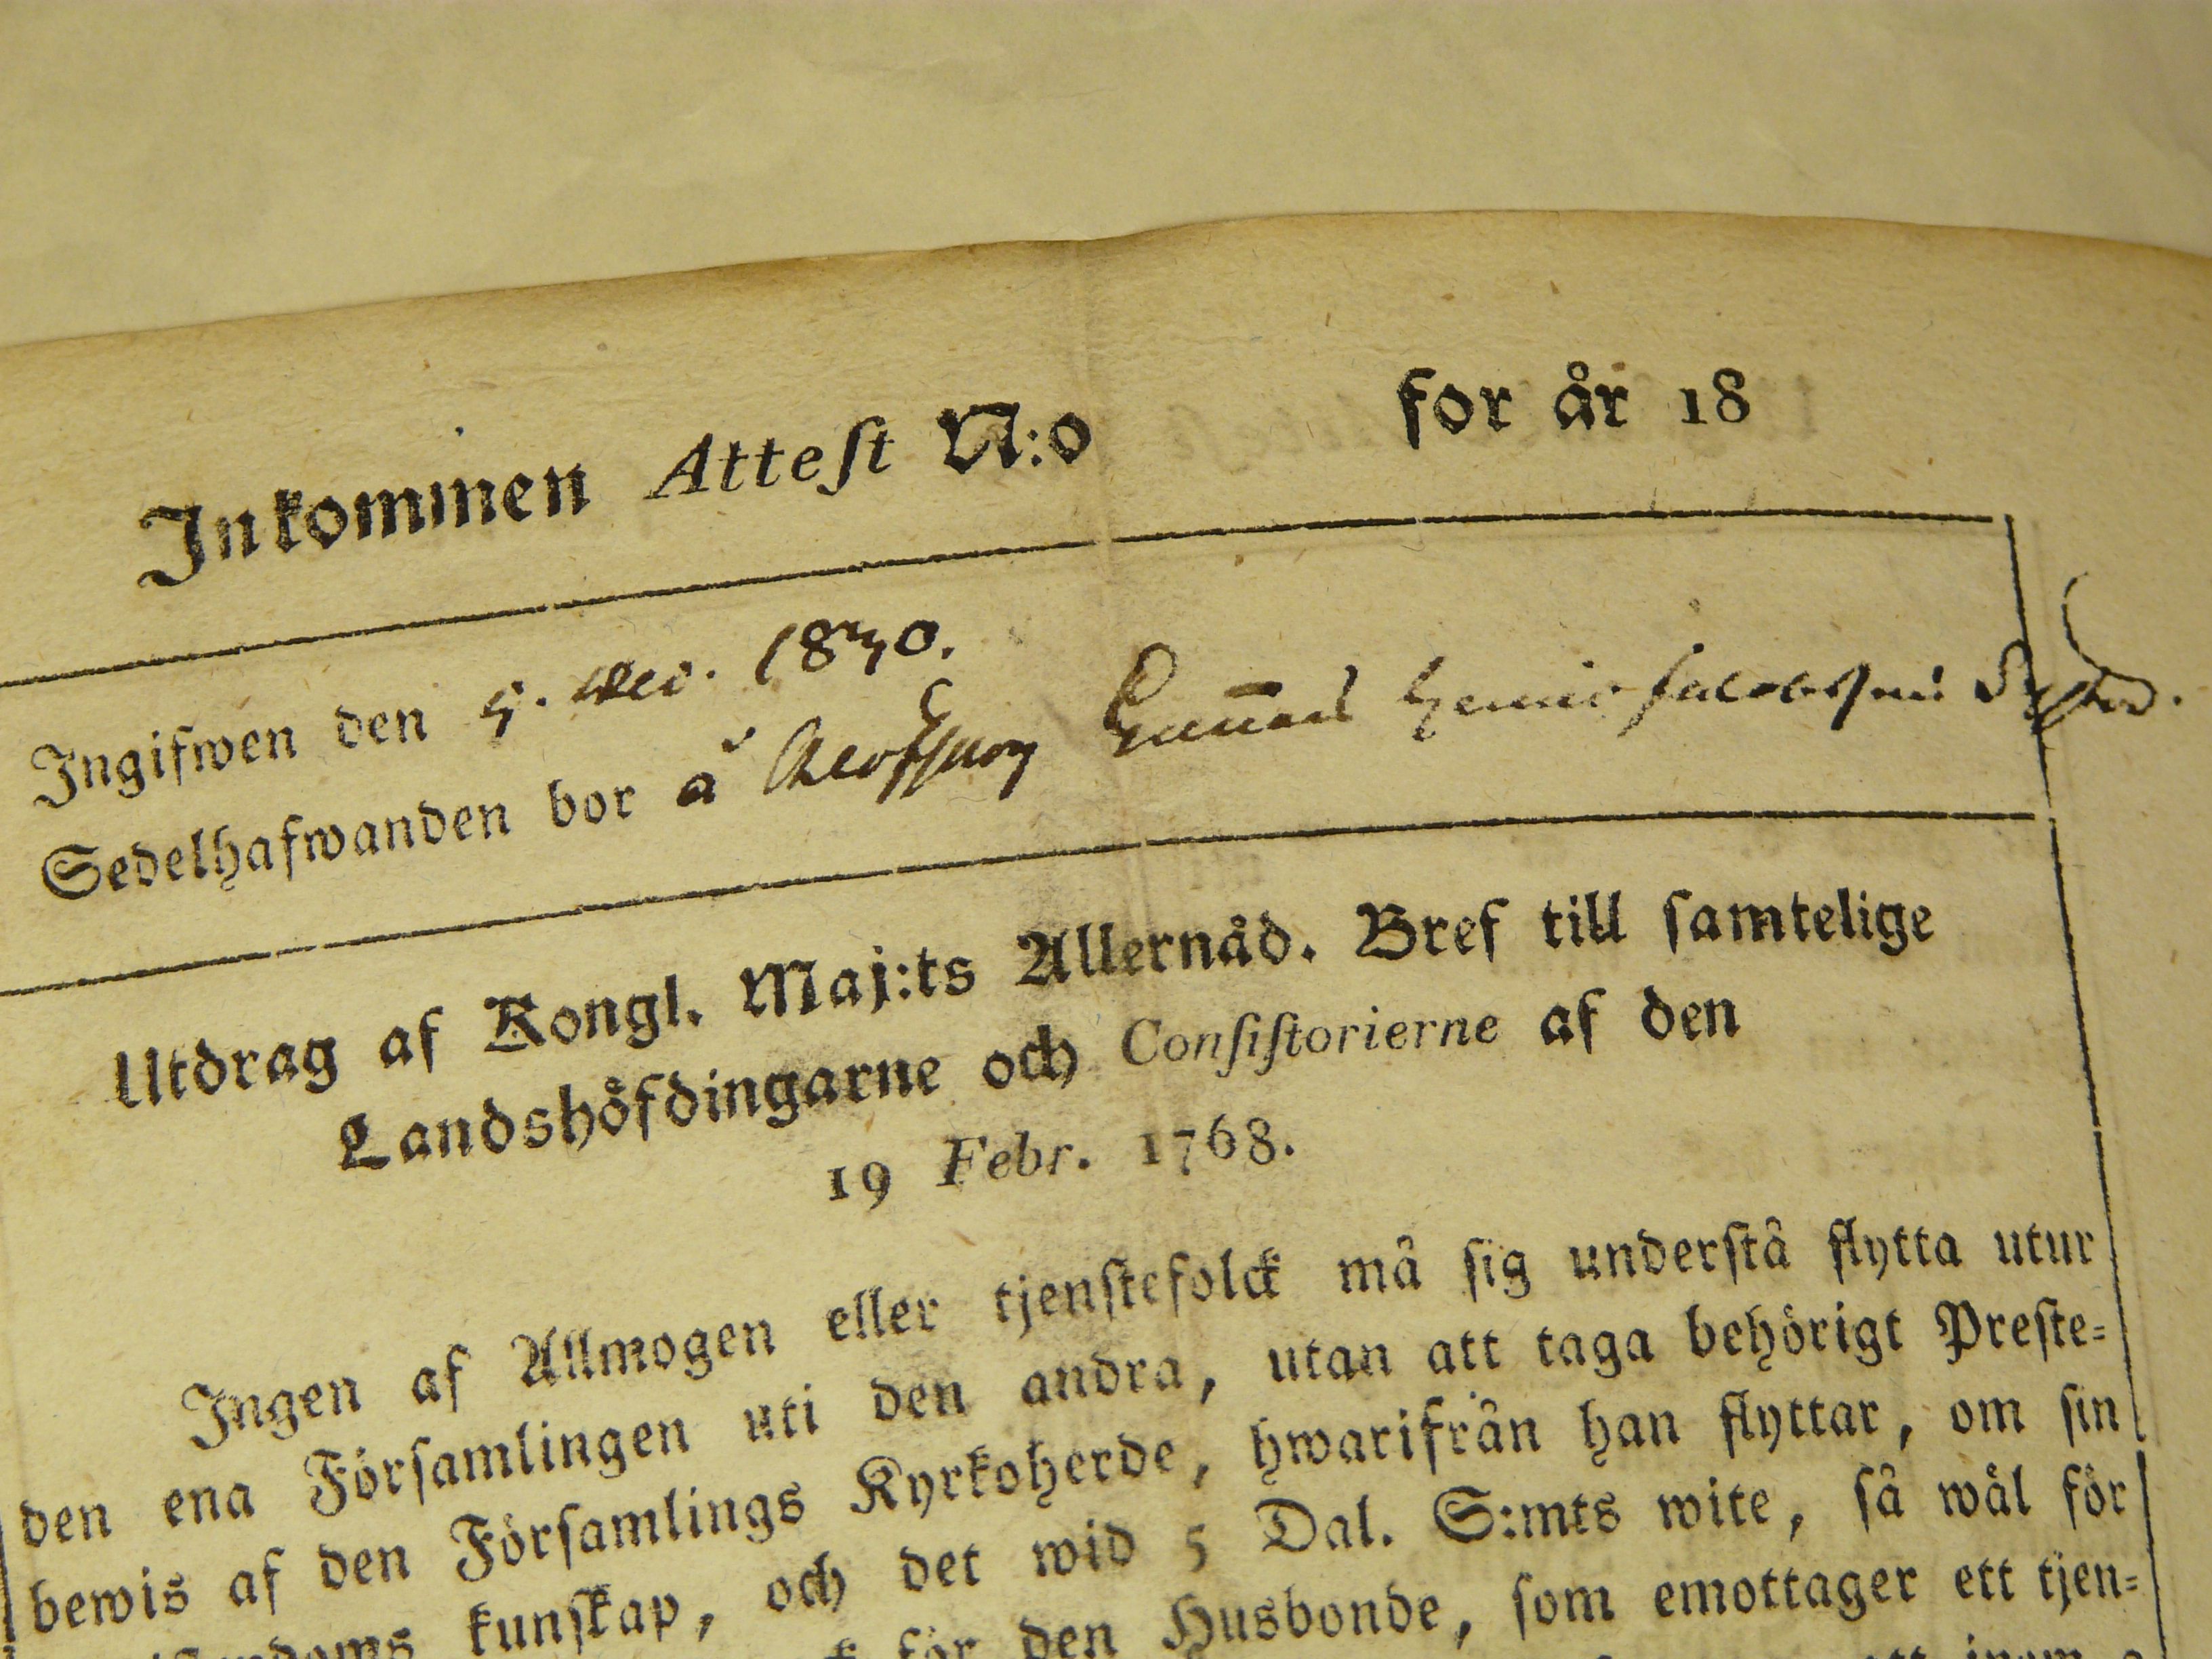 Inkommen Attest N:o för år 18
Ingifwen den 9. Dec. 1830.
Sedelhafwanden bor å
Utdrag af Kongl. Maj:ts Allernåd. Bref till samtelige
Landshöfdingarne och Consistorierne af den
19 Febr. 1768.
Ingen af Allmogen eller tjenstefolck må sig understå flytta utur
den ena Församlingen uti den andra, utan att taga behörigt Preste-
bewis af den Församlings Kyrkoherde, hwarifrån han flyttar, om sin
kunskap, och det wid 5 Dal. S:mts wite, så wäl för
för den Husbonde, som emottager ett tjen-